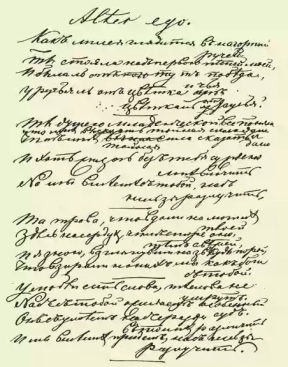 Alter ego.
Какъ лилея глядится въ нагорный
ручей
Ты стояла надъ первою пѣсней моей,
И была ли при этомъ побѣда,
и чья
У ручья ль отъ цвѣтка
цвѣткаль отъ ручья?
Ты душою младенческой все поняла
что мнѣ высказать
тайная дала
И хоть жизнь безъ тебя суждено
мнѣ влачить
Но мы вмѣстѣ съ тобой, насъ
нельзя разлучить
Та трава, что вдали на могилѣ
твоей
Здѣсь на сердцѣ, чѣмъ старе оно,
тѣмъ свѣжей
И я знаю, взглянувши на звѣзды порой
Что взирали на нихъ мы какъ боги
съ тобой
У любви есть слова, тѣ слова не
умрутъ.
Насъ съ тобой ожидаетъ особенный
судъ.
различить
И мы вмѣстѣ придемъ, насъ нельзя
разлучить.